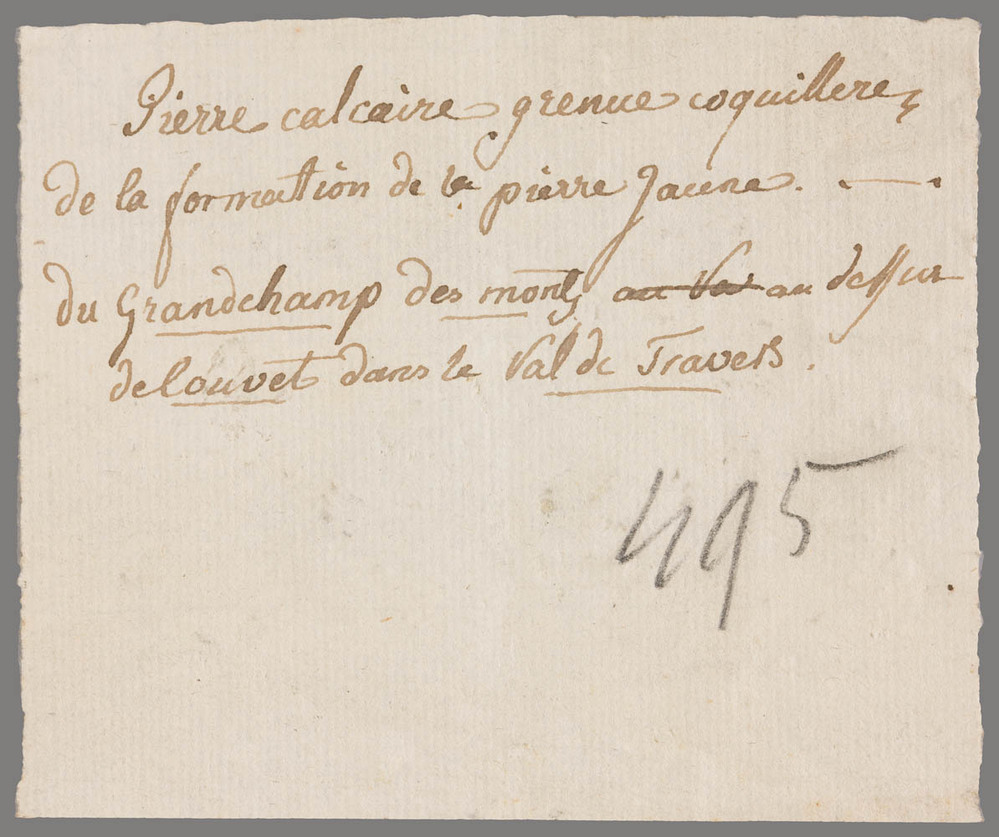 Pierre calcaire grenue coquillere,
de la formation de la pierre Jaune. —
du Grandchamp des monts au Val au dessur
de Couvet dans le Val de Travers.
495